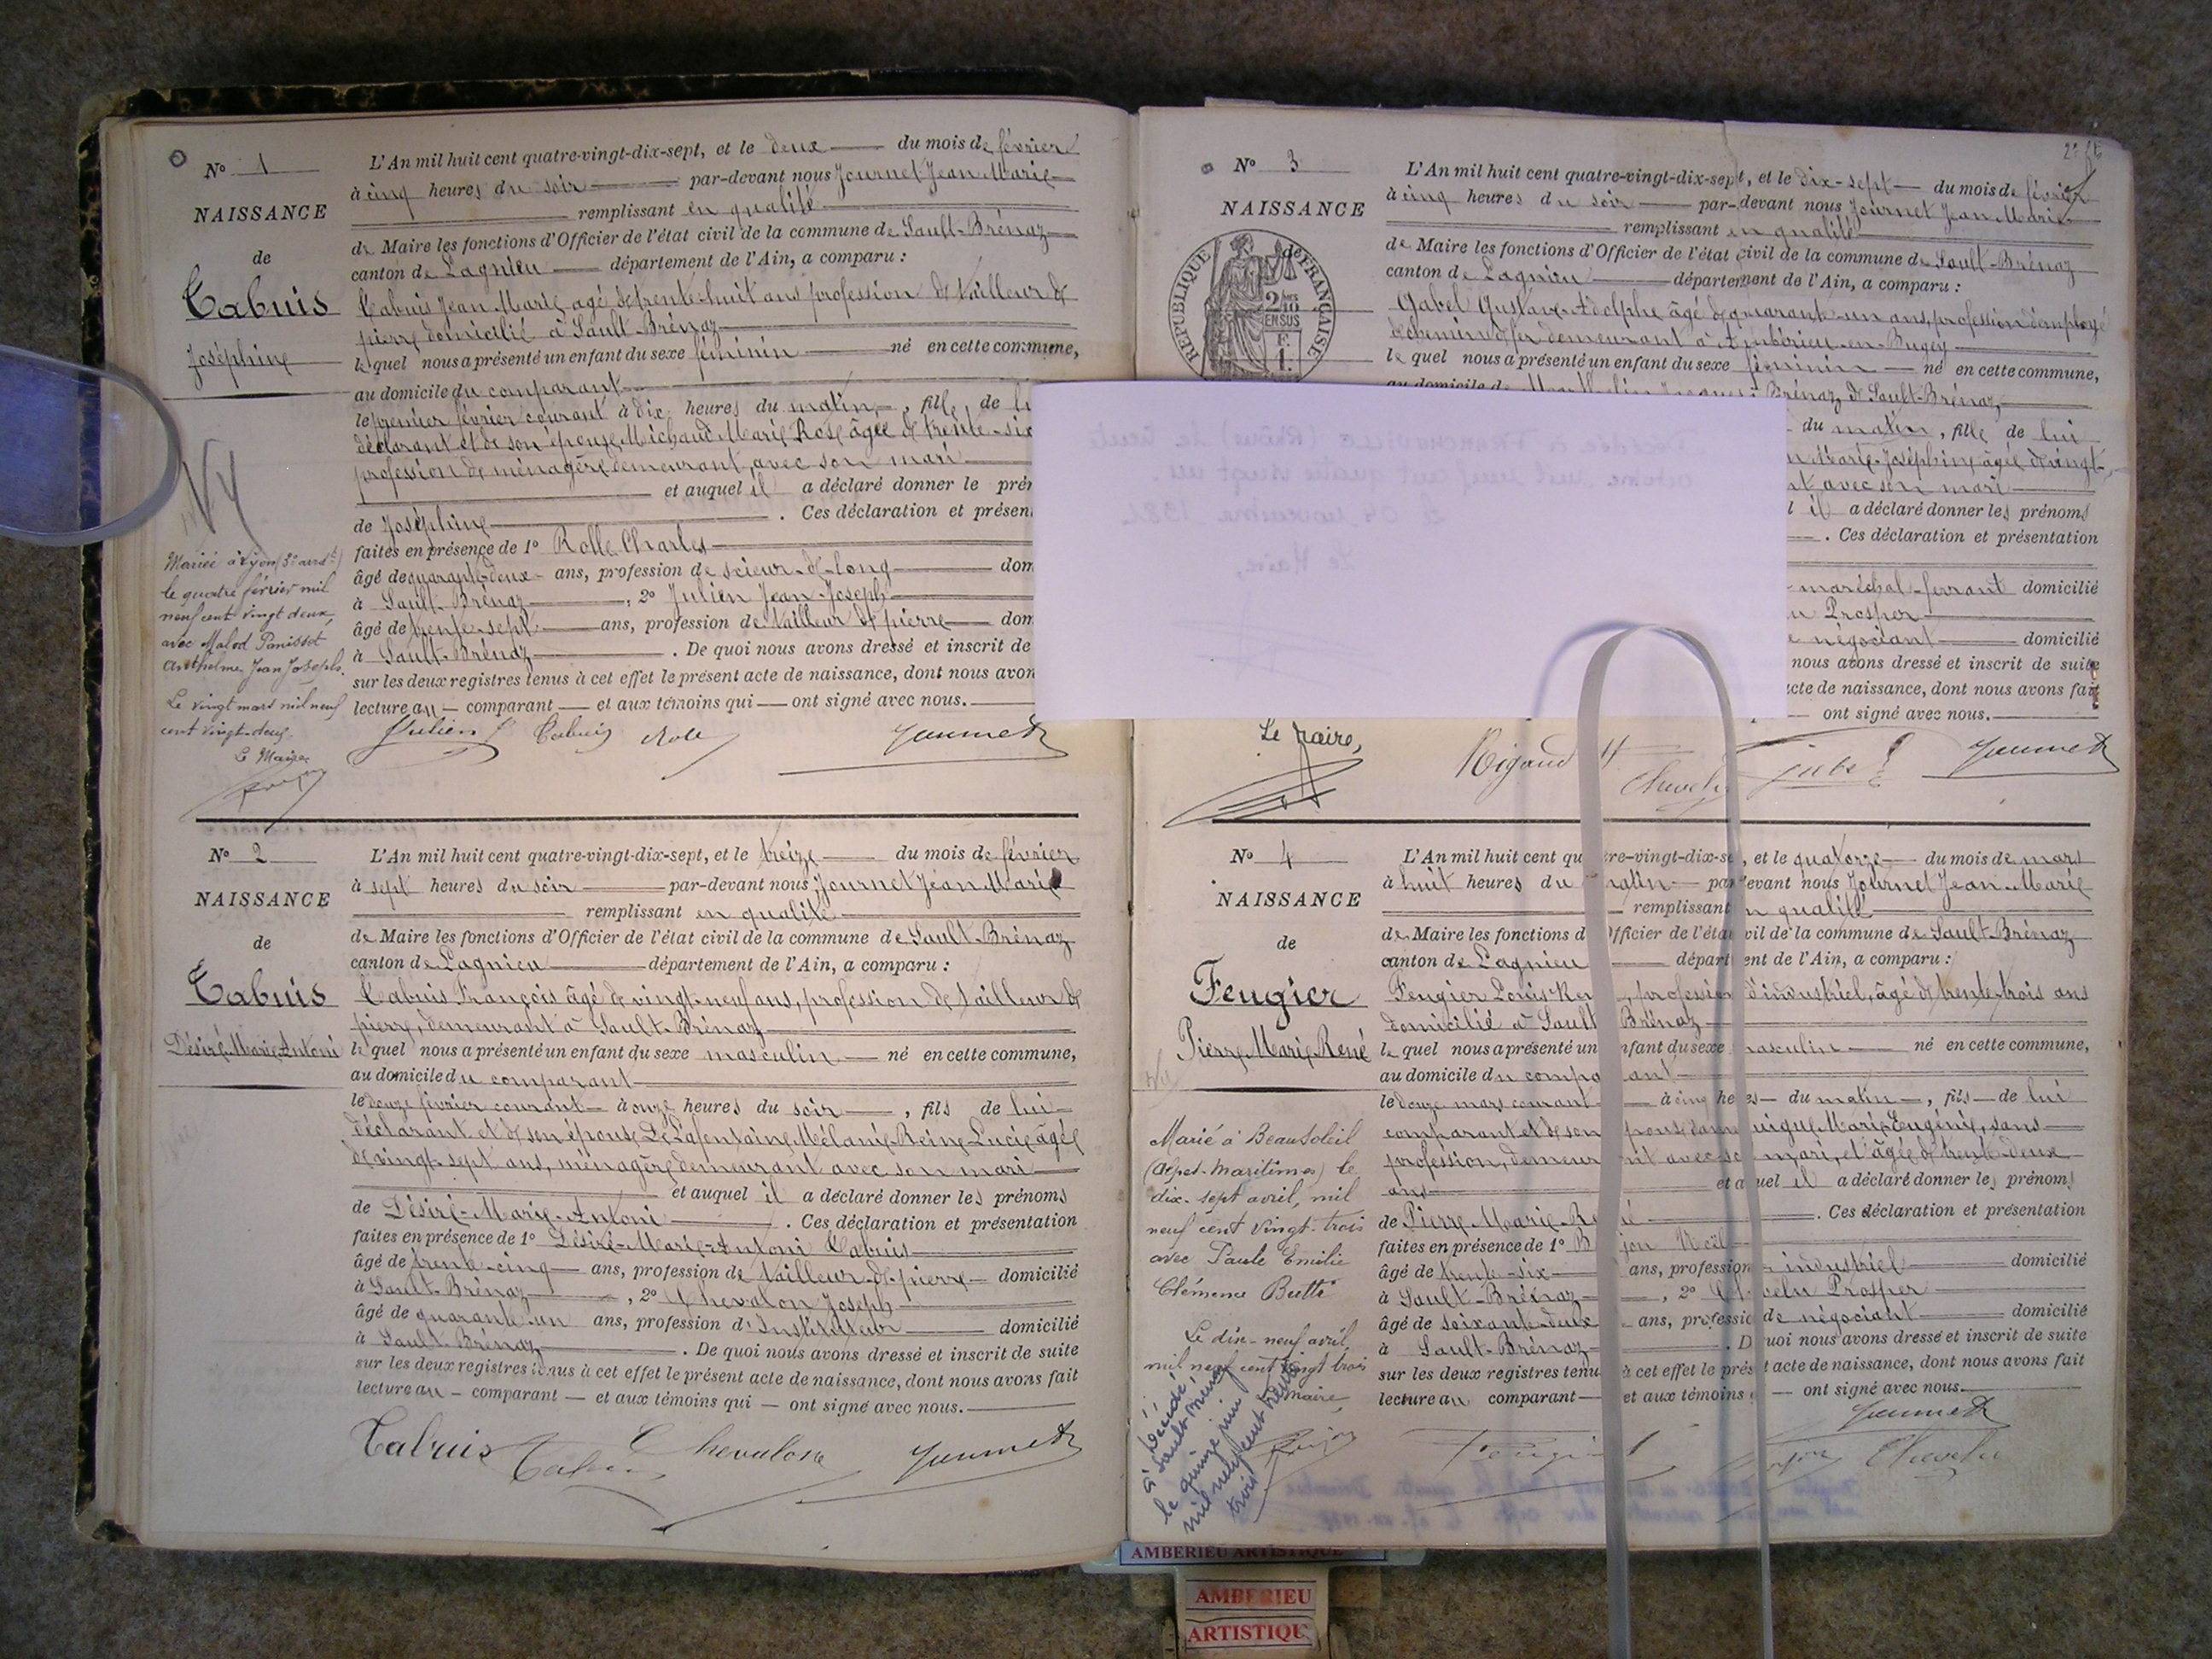 N° 1
NAISSANCE
de
Tabuis
Joséphine
Mariée à Lyon (3e arrdt)
le quatre février mil
neuf cent vingt deux,
avec Malod Panisset
Anthelme Jean Joseph.
Le vingt mars mil neuf
cent vingt-deux
Le Maire
L'An mil huit cent quatre-vingt-dix-sept, et le deux du mois de février
à cinq heures du soir par-devant nous Journet Jean Marie
remplissant en qualité
de Maire les fonctions d'Officier de l'état civil de la commune de Sault-Brénaz
canton de Lagnieu département de l'Ain, a comparu :
Tabuis Jean Marie agé de trente-huit ans profession de tailleur de
pierre domicilié à Sault-Brénaz
lequel nous a présenté un enfant du sexe féminin né en cette commune,
au domicile du comparant
le premier février courant à dix heures du matin, fille de
déclarant et de son épouse Michaud Marie Rose âgée de trente-six
profession de ménagère demeurant avec son mari
et auquel il a déclaré donner le
de Joséphine . Ces déclaration et
faites en présence de 1° Rolle Charles
âgé de quarante-deux ans, profession de scieur-de-long
à Sault-Brénaz , 2° Julien Jean-Joseph
âgé de trente-sept ans, profession de tailleur de pierre
à Sault-Brénaz . De quoi nous avons dressé et inscrit de
sur les deux registres tenus à cet effet le présent acte de naissance, dont nous
lecture au comparant et aux témoins qui ont signé avec nous.
Julien J. Tabuis Rolle Journet
N° 2
NAISSANCE
de
Tabuis
Désiré Marie Antoni
L'An mil huit cent quatre-vingt-dix-sept, et le treize du mois de février
à sept heures du soir par-devant nous Journet Jean Marie
remplissant en qualité
de Maire les fonctions d'Officier de l'état civil de la commune de Sault-Brénaz
canton de Lagnieu département de l'Ain, a comparu :
Tabuis François âgé de vingt-neuf ans, profession de tailleur de
pierre, demeurant à Sault-Brénaz
lequel nous a présenté un enfant du sexe masculin né en cette commune,
au domicile du comparant
le douze février courant à onze heures du soir , fils de lui
déclarant et de son épouse De Lafontaine Mélanie-Reine-Lucie âgée
de vingt-sept ans, ménagère demeurant avec son mari
et auquel il a déclaré donner les prénoms
de Désiré-Marie-Antoni . Ces déclaration et présentation
faites en présence de 1° Désiré-Marie-Antoni Tabuis
âgé de trente-cinq ans, profession de tailleur-de-pierre domicilié
à Sault-Brénaz , 2° Chevalon Joseph
âgé de quarante-un ans, profession d'Instituteur domicilié
à Sault-Brénaz . De quoi nous avons dressé et inscrit de suite
sur les deux registres tenus à cet effet le présent acte de naissance, dont nous avons fait
lecture au comparant et aux témoins qui ont signé avec nous.
Tabuis Chevalon Journet
N° 3
NAISSANCE
de
RÉPUBLIQUE FRANÇAISE
2/10 EN SUS
L'An mil huit cent quatre-vingt-dix-sept, et le dix-sept du mois de février
à cinq heures du soir par-devant nous Journet Jean Marie
remplissant en qualité
de Maire les fonctions d'Officier de l'état civil de la commune de Sault-Brénaz
canton de Lagnieu département de l'Ain, a comparu :
Gabel Gustave-Adolphe âgé de quarante-un ans, profession d'employé
de chemin de fer demeurant à Ambérieu-en-Bugey
lequel nous a présenté un enfant du sexe féminin né en cette commune,
au domicile de Brénaz, de Sault-Brénaz
du matin, fille de lui
Marie-Joséphine âgée de vingt-
avec son mari
il a déclaré donner les prénoms
. Ces déclaration et présentation
maréchal-ferrant domicilié
Prosper
négociant domicilié
nous avons dressé et inscrit de suite
acte de naissance, dont nous avons fait
ont signé avec nous.
Le Maire,
Rigaud Journet
N° 4
NAISSANCE
de
Feugier
Pierre Marie René
Marié à Beausoleil
(Alpes-Maritimes) le
dix-sept avril, mil
neuf cent vingt-trois
avec Paule Emilie
Clémence Butti
Le dix-neuf avril
mil neuf cent vingt trois
maire,
Décédé
à Sault Brénaz
le quinze juin
mil neuf cent
trois
L'An mil huit cent quatre-vingt-dix-sept, et le quatorze du mois de mars
à huit heures du matin par-devant nous Journet Jean-Marie
remplissant en qualité
de Maire les fonctions d'Officier de l'état civil de la commune de Sault-Brénaz
canton de Lagnieu département de l'Ain, a comparu :
Feugier Louis , profession d'industriel, âgé de trente-trois ans
domicilié à Sault Brénaz
lequel nous a présenté un enfant du sexe masculin né en cette commune,
au domicile du comparant
le douze mars courant à cinq heures du matin , fils de lui
comparant et de son épouse Marie Eugénie, sans
profession, demeurant avec son mari, et âgée de trente-deux
ans et auquel il a déclaré donner les prénoms
de Pierre-Marie-René . Ces déclaration et présentation
faites en présence de 1° Noël
âgé de trente-six ans, profession industriel domicilié
à Sault-Brénaz , 2° Prosper
âgé de soixante-deux ans, profession de négociant domicilié
à Sault-Brénaz . De quoi nous avons dressé et inscrit de suite
sur les deux registres tenus à cet effet le présent acte de naissance, dont nous avons fait
lecture au comparant et aux témoins ont signé avec nous.
Journet
AMBERIEU ARTISTIQUE
AMBERIEU
ARTISTIQU